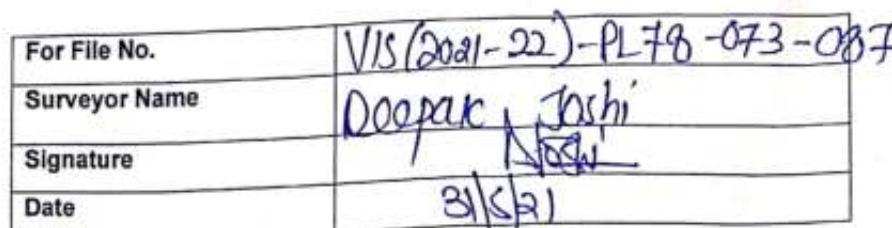 For File No. VIS(2021-22)-PL78-073-087
Surveyor Name Deepak Joshi
Signature
Date 31/5/21